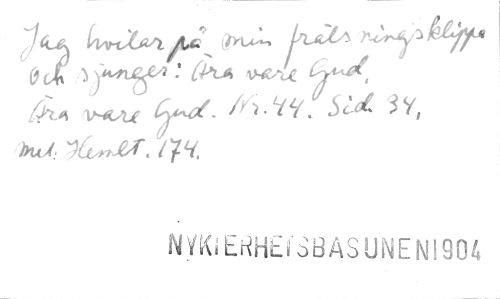 Jag hvilar på min frälsningsklippa
och sjunger: Ära vare Gud,
Ära vare Gud. Nr. 44. Sid. 34,
mel. Hemlt. 174.
NYKTERHETSBASUNEN 1904